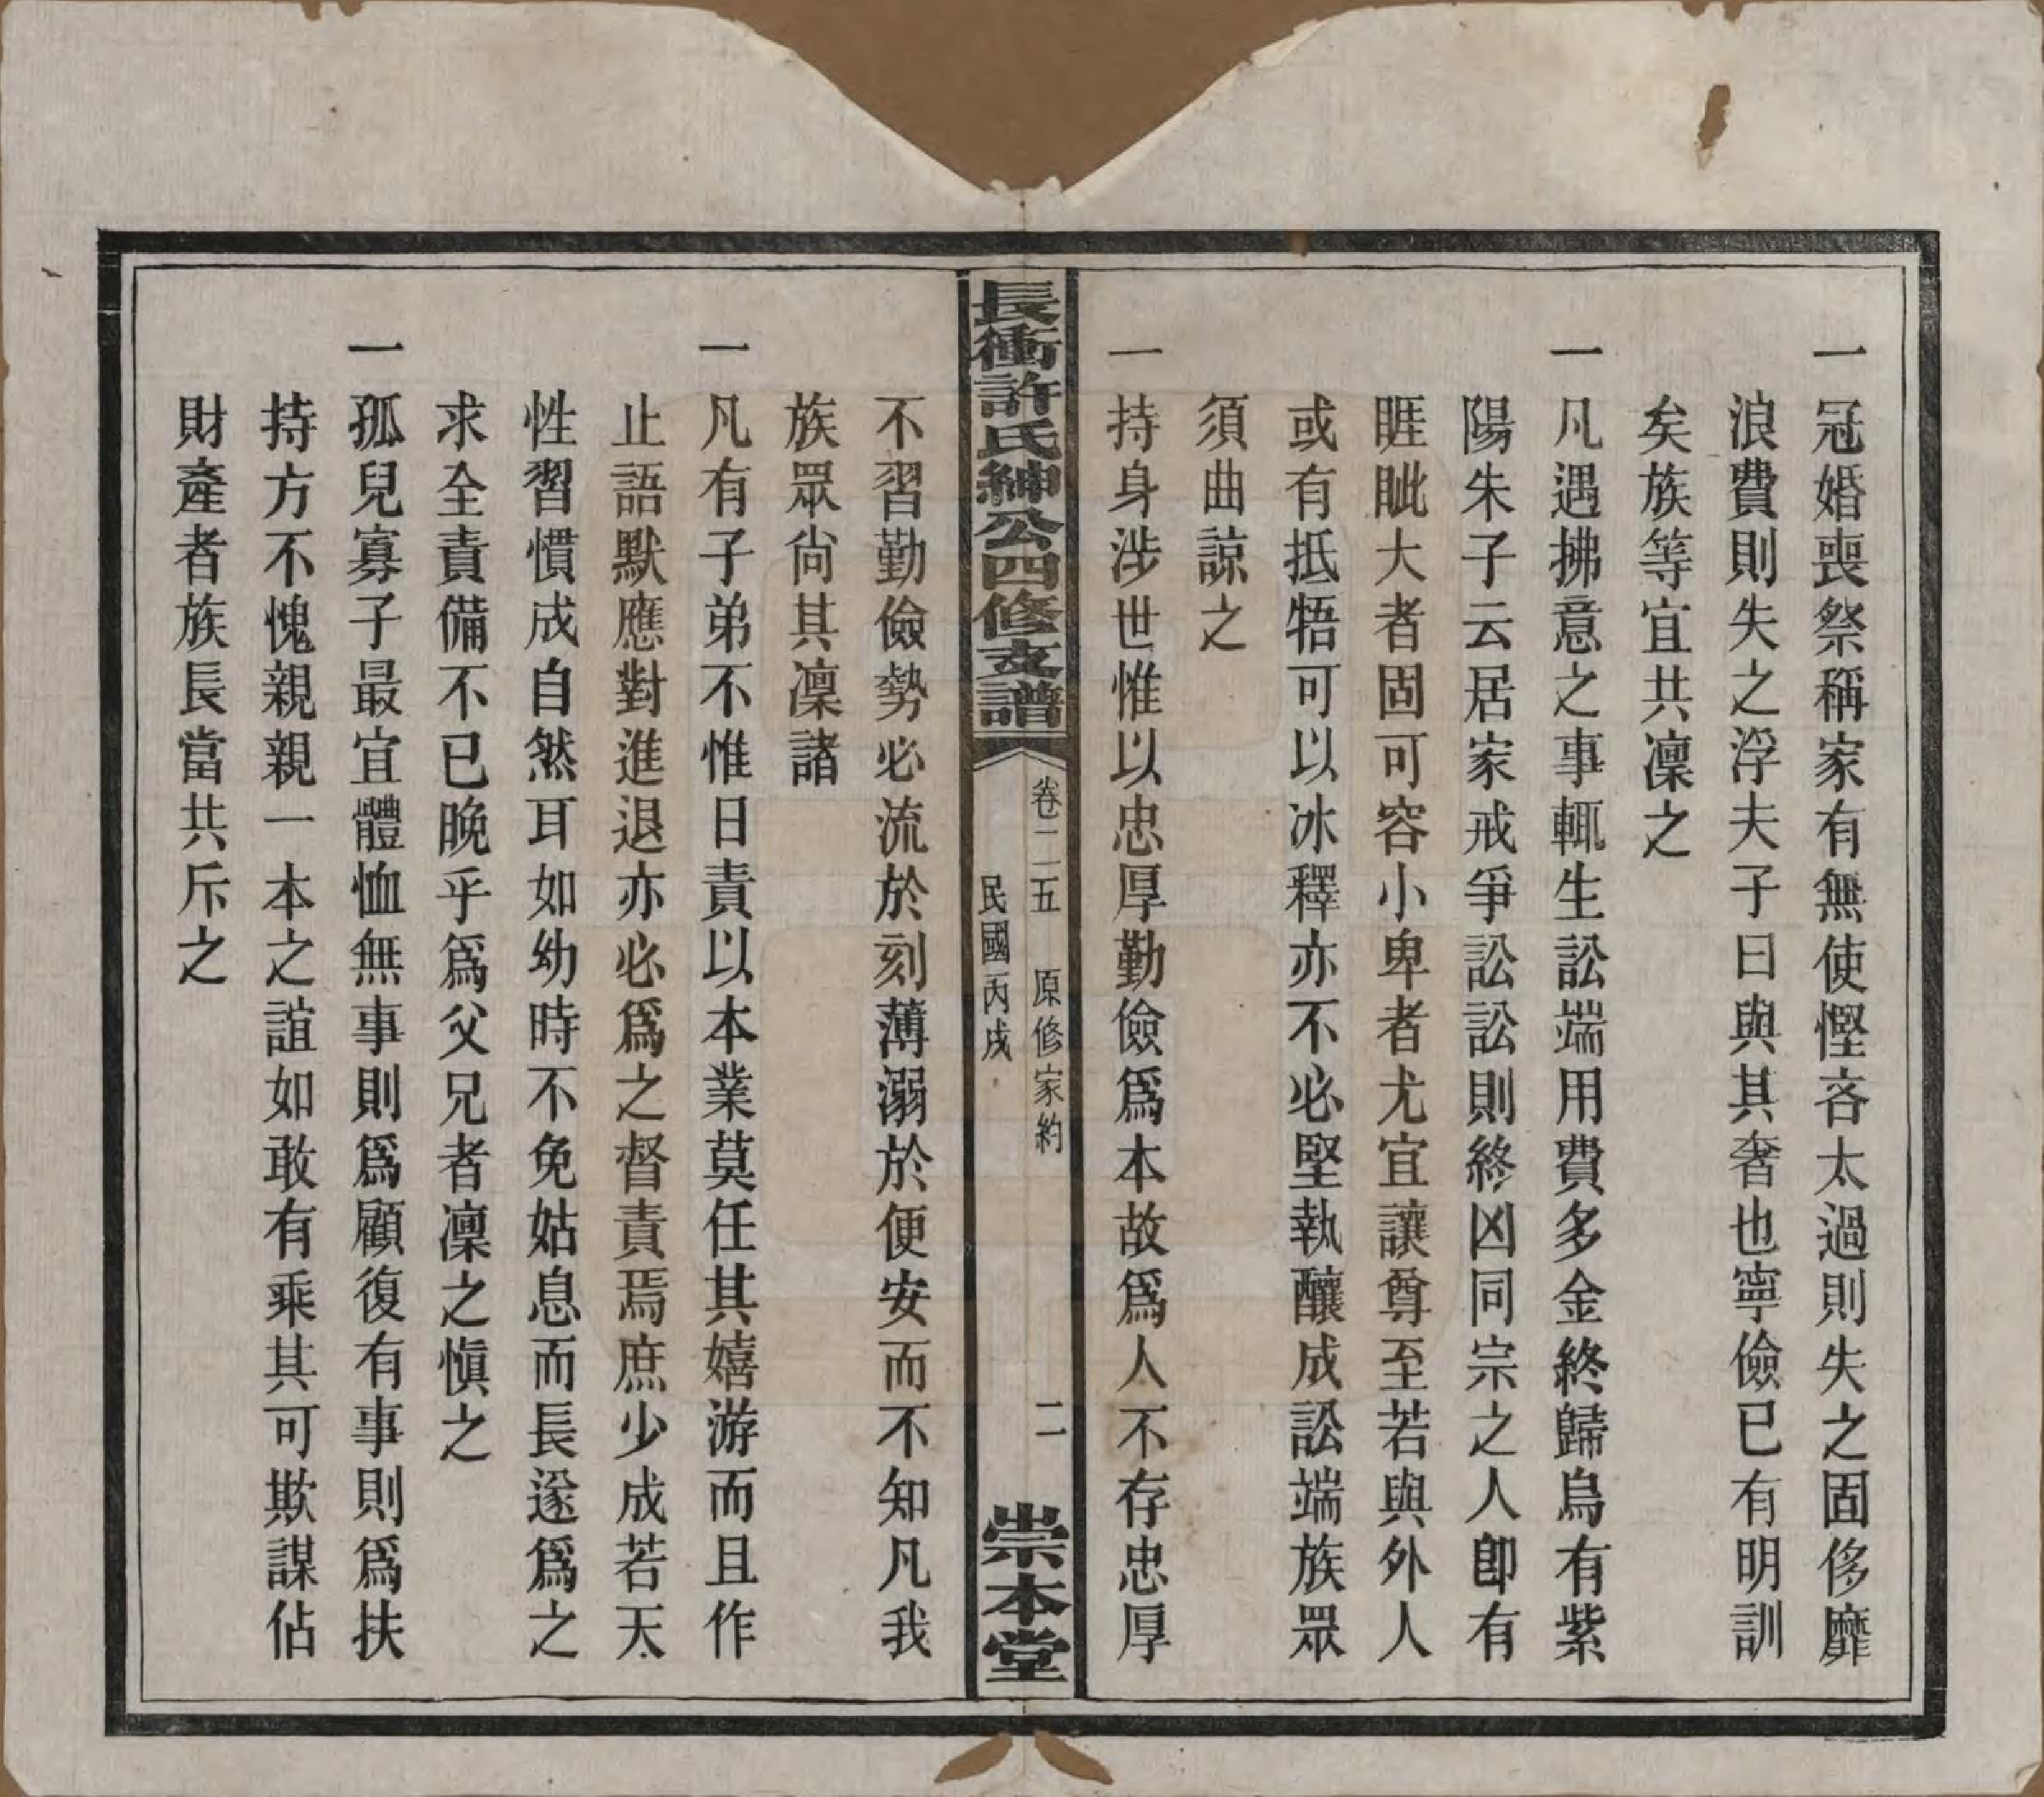 一冠婚喪祭稱家有無使慳吝太過則失之固侈靡
浪費則失之浮夫子曰與其奢也寧儉已有明訓
矣族等宜共凜之
一凡遇拂意之事輒生訟端用費多金終歸烏有紫
陽朱子云居家戒爭訟訟則終凶同宗之人卽有
睚眦大者固可容小卑者尤宜讓尊至若與外人
或有抵牾可以冰釋亦不必堅執釀成訟端族眾
須曲諒之
一持身涉世惟以忠厚勤儉爲本故爲人不存忠厚
長衝許氏紳公四修支譜
卷二五 原修家約 二
民國丙戌
崇本堂
不習勤儉勢必流於刻薄溺於便安而不知凡我
族眾尙其凜諸
一凡有子弟不惟日責以本業莫任其嬉游而且作
止語默應對進退亦必爲之督責焉庶少成若天
性習慣成自然耳如幼時不免姑息而長遂爲之
求全責備不已晚乎爲父兄者凜之愼之
一孤兒寡子最宜體恤無事則爲顧復有事則爲扶
持方不愧親親一本之誼如敢有乘其可欺謀佔
財產者族長當共斥之